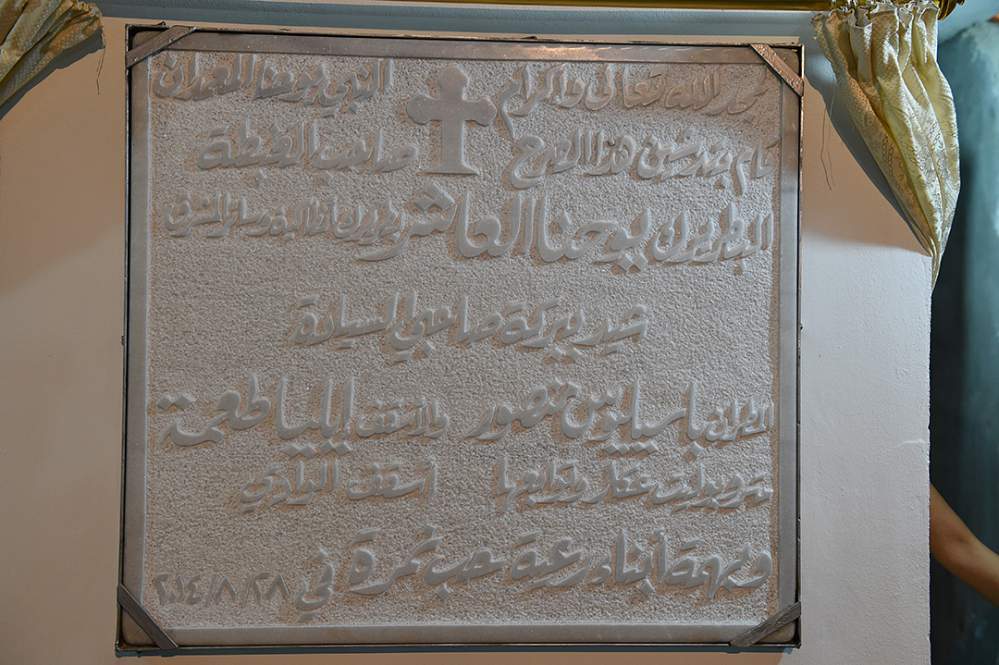 لمجد الله تعالى واكرام النبي يوحنا المعمدان
قام بتدشين هذا الصرح صاحب الغبطة
البطريرك يوحنا العاشر بطريرك أنطاكية وسائر المشرق
شيد ببركة صاحبي السيادة
المطران باسيليوس منصور والأسقف إيليا طعمة
متروبوليت عكار وتوابعها أسقف الوادي
وبهمة أبناء رعية حب نمرة في ٢٠١٤/٨/٢٨